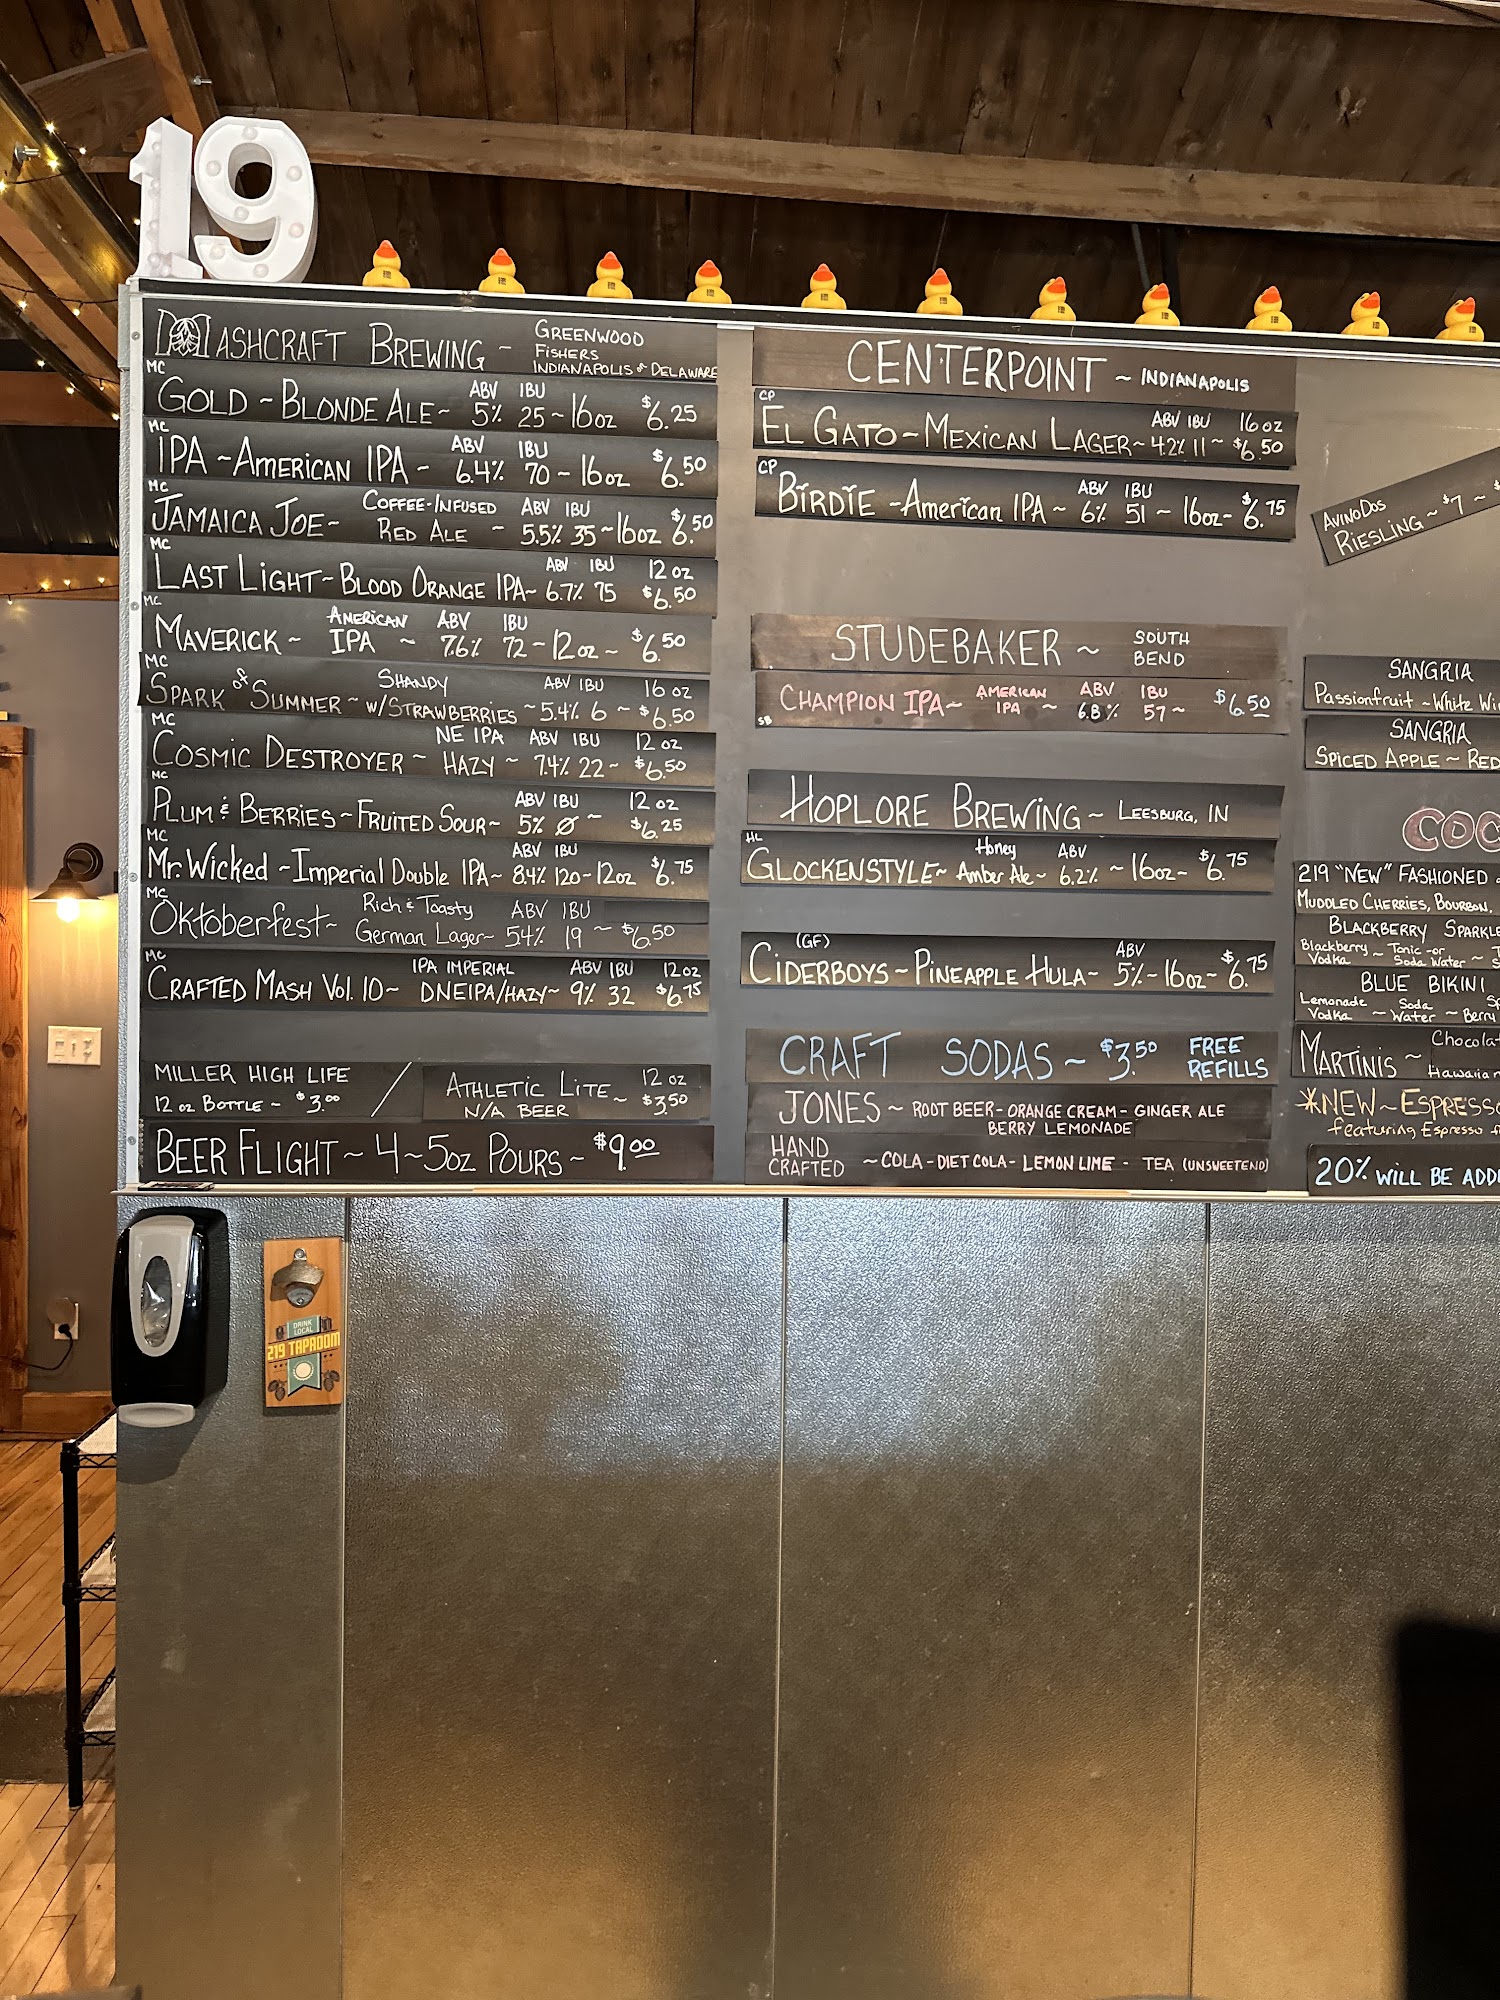 19
MASHCRAFT BREWING ~ GREENWOOD
FISHERS
INDIANAPOLIS & DELAWARE
MC
GOLD ~ BLONDE ALE ~ ABV 5% IBU 25 ~ 16oz $6.25
MC
IPA ~ AMERICAN IPA - ABV 6.4% IBU 70 ~ 16oz $6.50
MC
JAMAICA JOE ~ COFFEE-INFUSED RED ALE ~ ABV 5.5% IBU 35 ~ 16oz $6.50
MC
LAST LIGHT ~ BLOOD ORANGE IPA ~ ABV 6.7% IBU 75 12 oz $6.50
MC
MAVERICK ~ AMERICAN IPA ~ ABV 7.6% IBU 72 ~ 12oz ~ $6.50
MC
SPARK of SUMMER ~ SHANDY W/STRAWBERRIES ~ ABV 5.4% IBU 6 ~ 16 oz $6.50
MC
COSMIC DESTROYER ~ NE IPA HAZY ~ ABV 7.4% IBU 22 ~ 12 oz $6.50
MC
PLUM & BERRIES ~ FRUITED SOUR ~ ABV 5% IBU Ø ~ 12 oz $6.25
MC
Mr. Wicked ~ Imperial Double IPA ~ ABV 8.4% IBU 120 - 12oz $6.75
MC
Oktoberfest ~ Rich & Toasty German Lager ~ ABV 5.4% IBU 19 ~ $6.50
MC
CRAFTED MASH VOL. 10 ~ IPA IMPERIAL DNEIPA/HAZY ~ ABV 9% IBU 32 12oz $6.75
MILLER HIGH LIFE
12 oz BOTTLE ~ $3.00
/
ATHLETIC LITE ~ 12 oz
N/A BEER $3.50
BEER FLIGHT ~ 4 ~ 5oz POURS ~ $9.00
CENTERPOINT ~ INDIANAPOLIS
CP
EL GATO ~ MEXICAN LAGER ~ ABV 4.2% IBU 11 ~ 16 oz $6.50
CP
BIRDIE - American IPA ~ ABV 6% IBU 51 ~ 16oz - $6.75
STUDEBAKER ~ SOUTH BEND
CHAMPION IPA ~ AMERICAN IPA ~ ABV 6.8% IBU 57 ~ $6.50
SB
HOPLORE BREWING ~ LEESBURG, IN
HL
GLOCKENSTYLE ~ Honey Amber Ale ~ ABV 6.2% ~ 16oz ~ $6.75
(GF)
CIDERBOYS ~ PINEAPPLE HULA ~ ABV 5% ~ 16oz - $6.75
CRAFT SODAS ~ $3.50 FREE REFILLS
JONES ~ ROOT BEER - ORANGE CREAM - GINGER ALE
BERRY LEMONADE
HAND CRAFTED ~ COLA - DIET COLA - LEMON LIME - TEA (UNSWEETEND)
AVINODOS
RIESLING ~ $7 ~ $
SANGRIA
Passionfruit ~ White Wi
SANGRIA
SPICED APPLE ~ RED
COC
219 "NEW" FASHIONED
MUDDLED CHERRIES, BOURBON,
BLACKBERRY SPARKLE
Blackberry Vodka ~ Tonic -or- Soda Water ~
BLUE BIKINI
Lemonade Vodka ~ Soda Water ~ Berry
MARTINIS ~ Chocolat
Hawaiian
*NEW ~ ESPRESSO
featuring Espresso
20% WILL BE ADD
DRINK LOCAL
219 TAPROOM